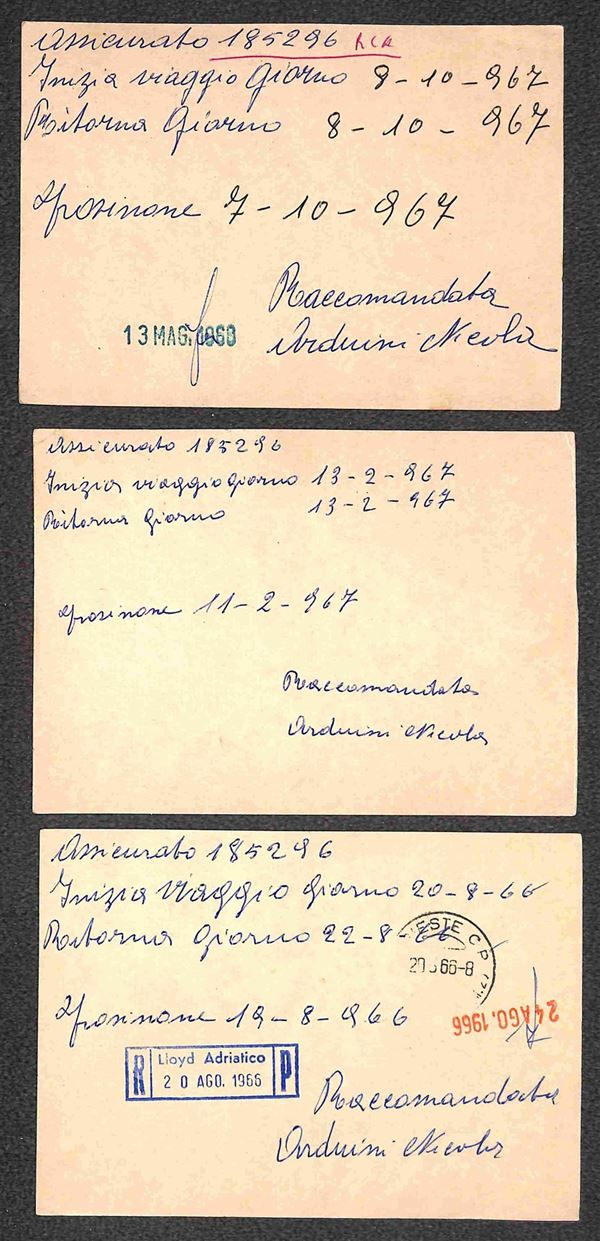 Assicurato 185296 RCA
Inizia viaggio Giorno 8-10-967
Ritorna Giorno 8-10-967
Frosinone 7-10-967
Raccomandata
13 MAG. 1968
Arduini Nicola
Assicurato 185296
Inizia viaggio giorno 13-2-967
Ritorna Giorno 13-2-967
Frosinone 11-2-967
Raccomandata
Arduini Nicola
Assicurato 185296
Inizia Viaggio Giorno 20-8-66
Ritorna Giorno 22-8-66
IESTE C.P.
66-8
24 AGO. 1966
Frosinone 19-8-966
R Lloyd Adriatico P
20 AGO. 1966
Raccomandata
Arduini Nicola